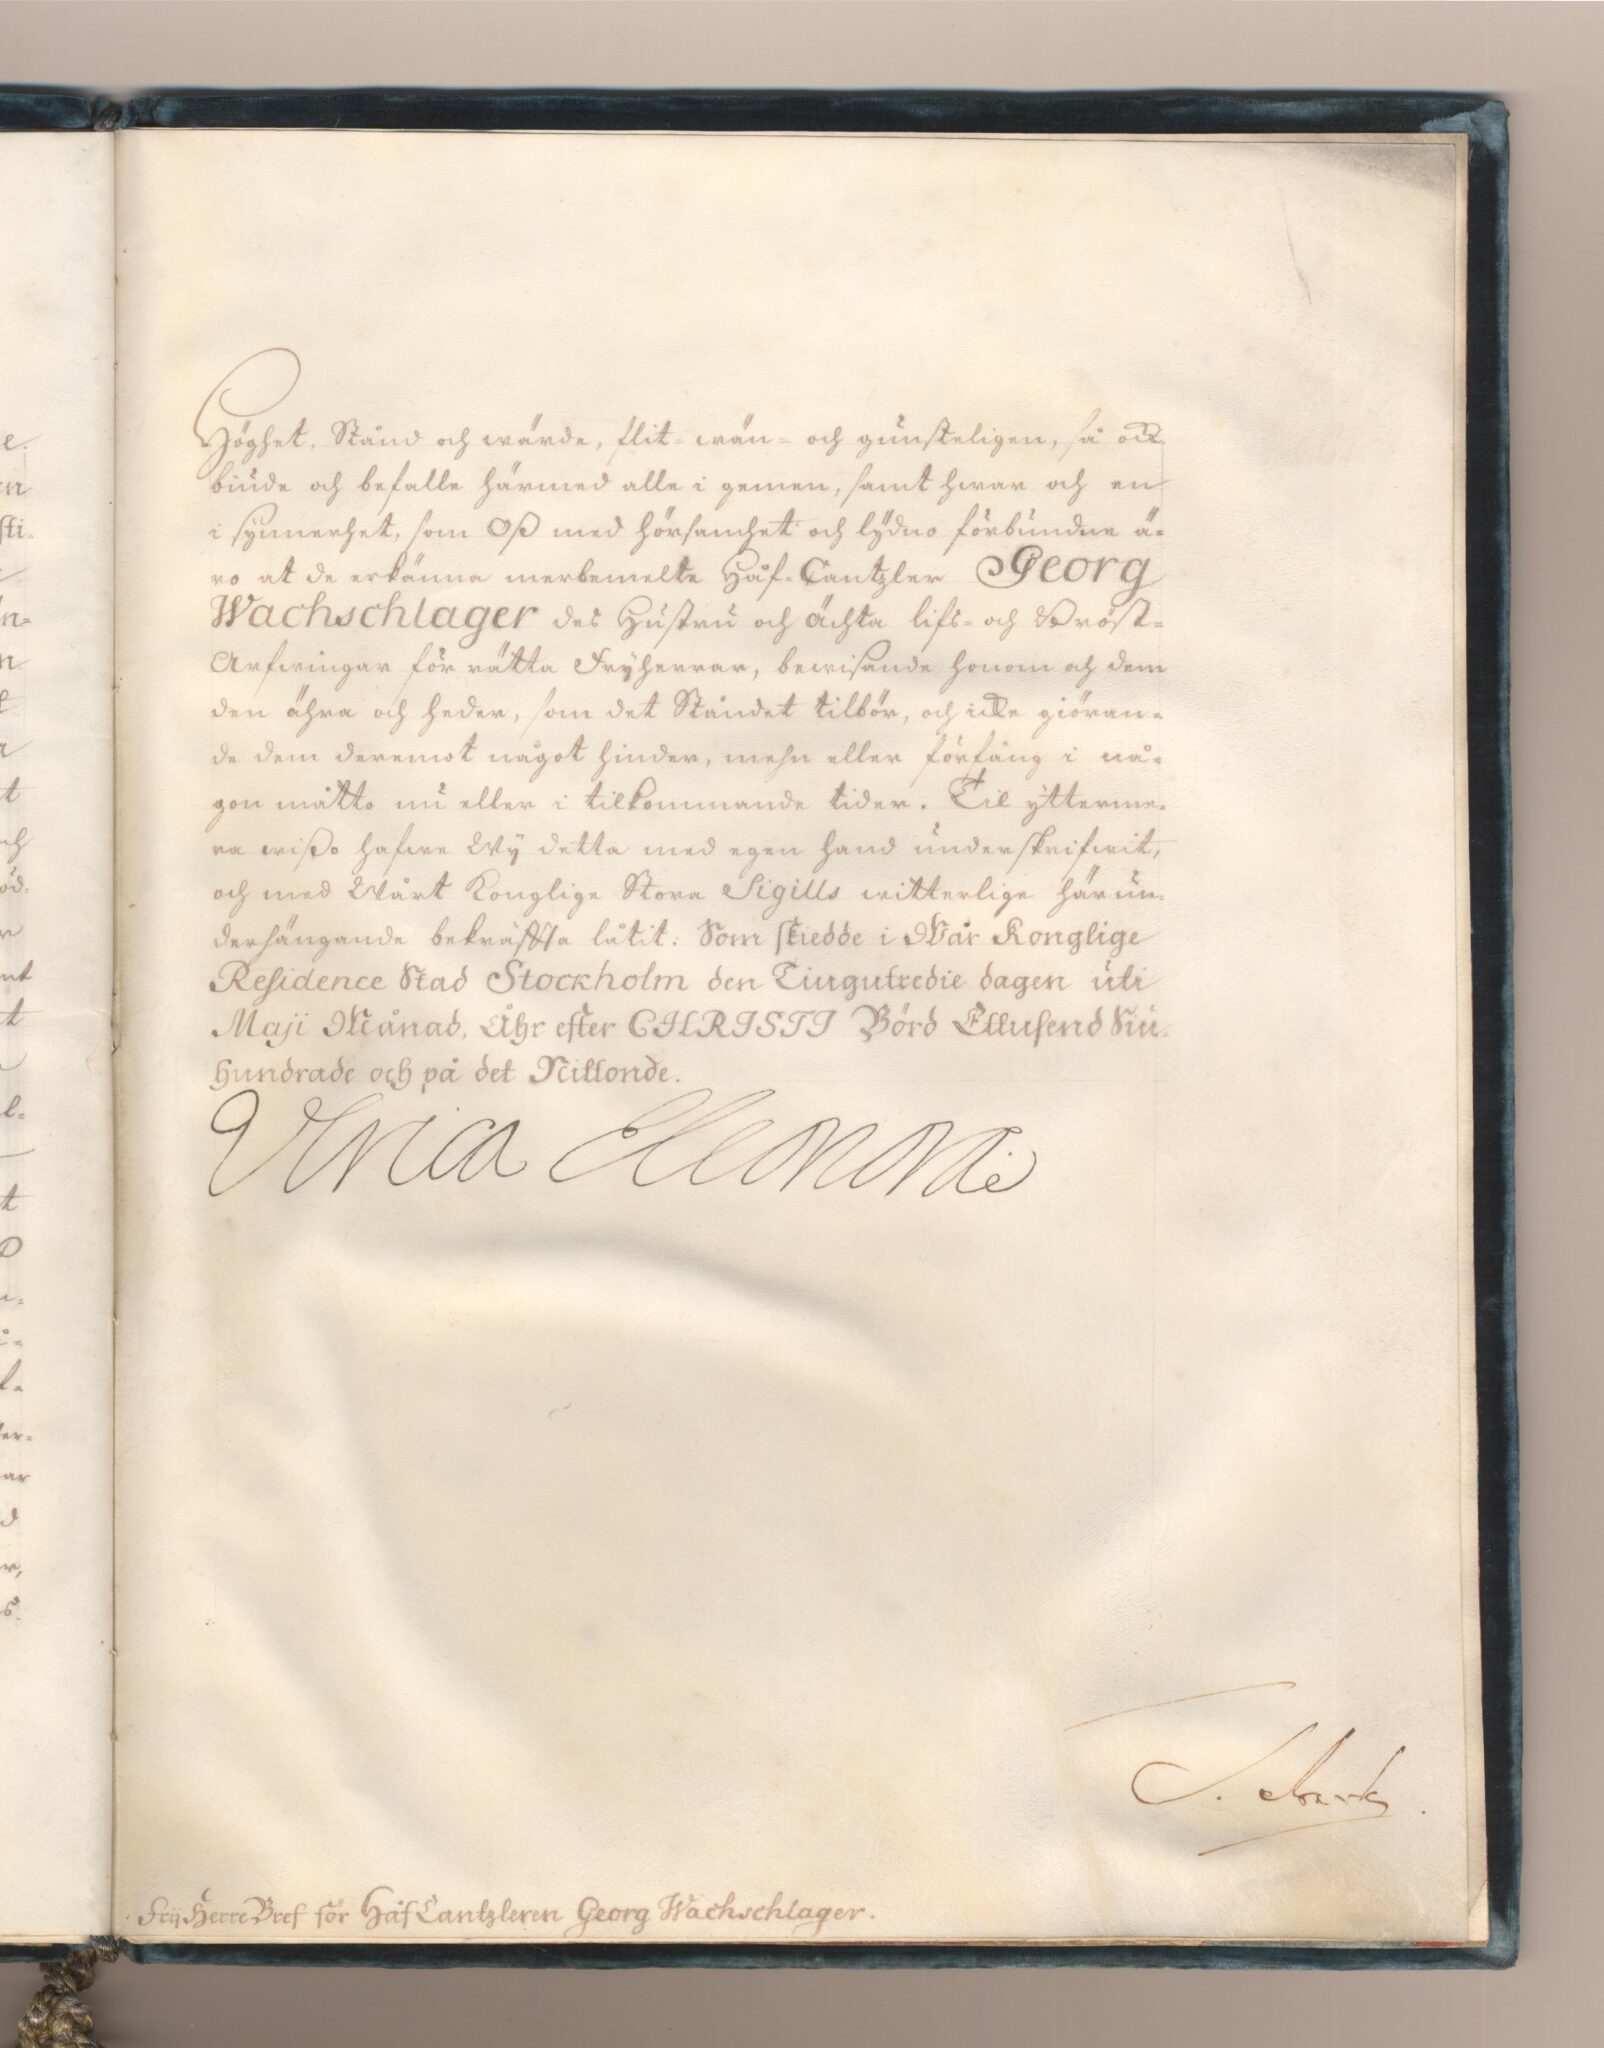 Höghet, Stånd och wärde, flit- wän- och gunsteligen, så ock
biude och befalle härmed alle i gemen, samt hwar och en
i synnerhet, som Oß med hörsamhet och lydno förbundne ä-
ro at de erkänna merbemelte Håf-Cantzler Georg
Wachschlager des Hustru och ächta lifs- och Bröst-
Arfwingar för rätta Fryherrar, bewisande honom och dem
den ähra och heder, som det Ståndet tilbör, och icke giöran-
de dem deremot något hinder, mehn eller förfång i nå-
gon måtto nu eller i tilkommande tider. Til ytterme-
ra wißo hafwe Wy detta med egen hand underskrifwit,
och med Wårt Konglige Stora Sigills witterlige härun-
derhängande bekräffta låtit: Som skiedde i Wår Konglige
Residence Stad Stockholm den Tiugutredie dagen uti
Maji Månad, Åhr efter CHRISTI Börd Ettusend Siu-
hundrade och på det Nittonde.
Ulrica Eleonora
Fry Herre Bref för Håf Cantzleren Georg Wachschlager.